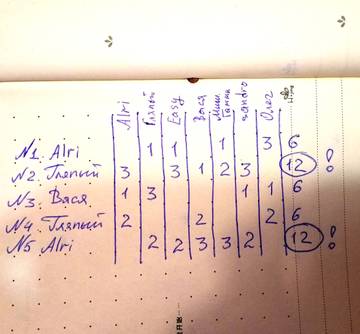 Alri Гляпый Easy Вася Миш Ганна sandro Олег
№1. Alri 1 1 1 3 6
№2. Гляпый 3 3 1 2 3 12 !
№3. Вася 1 3 1 1 6
№4. Гляпый 2 2 2 6
№5 Alri 2 2 3 3 2 12 !